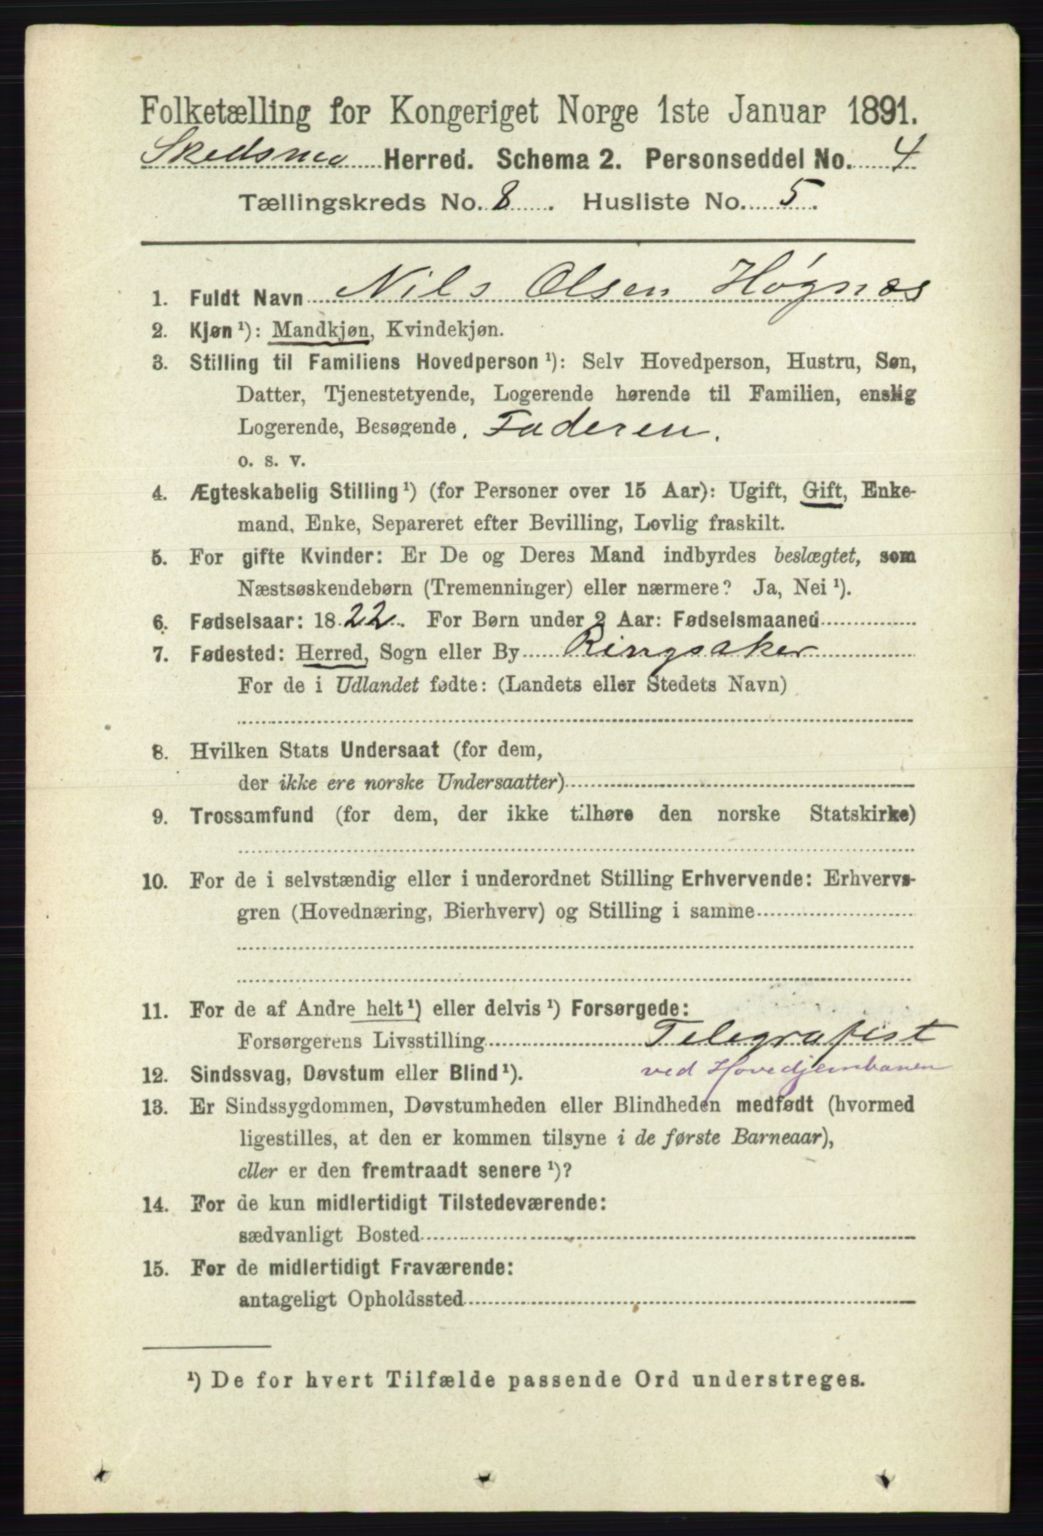 Folketælling for Kongeriget Norge 1ste Januar 1891.
Skedsmo Herred. Schema 2. Personseddel No. 4
Tællingskreds No. 8. Husliste No. 5.
1. Fuldt Navn Nils Olsen Høgnæs
2. Kjøn ¹): Mandkjøn, Kvindekjøn.
3. Stilling til Familiens Hovedperson ¹): Selv Hovedperson, Hustru, Søn,
Datter, Tjenestetyende, Logerende hørende til Familien, enslig
Logerende, Besøgende, Faderen.
o. s. v.
4. Ægteskabelig Stilling ¹) (for Personer over 15 Aar): Ugift, Gift, Enke-
mand, Enke, Separeret efter Bevilling, Lovlig fraskilt.
5. For gifte Kvinder: Er De og Deres Mand indbyrdes beslægtet, som
Næstsøskendebørn (Tremenninger) eller nærmere? Ja, Nei ¹).
6. Fødselsaar: 1822. For Børn under 2 Aar: Fødselsmaaned
7. Fødested: Herred, Sogn eller By Ringsaker
For de i Udlandet fødte: (Landets eller Stedets Navn)
8. Hvilken Stats Undersaat (for dem,
der ikke ere norske Undersaatter)
9. Trossamfund (for dem, der ikke tilhøre den norske Statskirke)
10. For de i selvstændig eller i underordnet Stilling Erhvervende: Erhvervs-
gren (Hovednæring, Bierhverv) og Stilling i samme
11. For de af Andre helt ¹) eller delvis ¹) Forsørgede:
Forsørgerens Livsstilling Telegrafist
ved Hovedjernbanen
12. Sindssvag, Døvstum eller Blind ¹).
13. Er Sindssygdommen, Døvstumheden eller Blindheden medfødt (hvormed
ligestilles, at den er kommen tilsyne i de første Barneaar),
eller er den fremtraadt senere ¹)?
14. For de kun midlertidigt Tilstedeværende:
sædvanligt Bosted
15. For de midlertidigt Fraværende:
antageligt Opholdssted
¹) De for hvert Tilfælde passende Ord understreges.